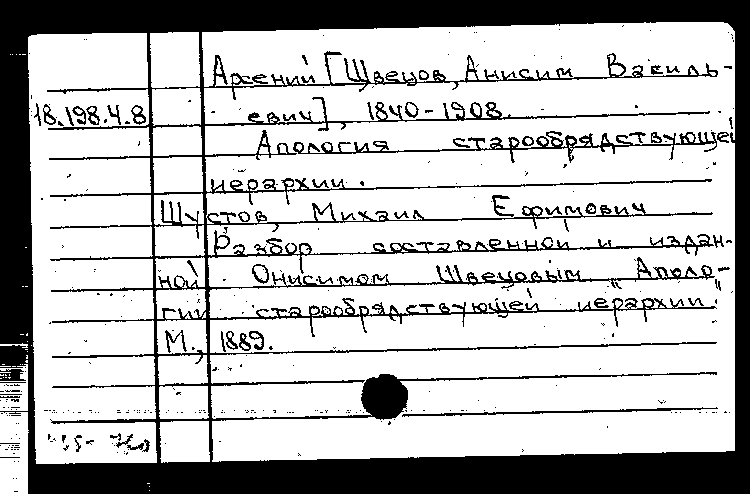 Арсений [Швецов, Анисим Василь-
18.198.4.8 евич], 1840-1908.
Апология старообрядствующей
иерархии.
Шустов, Михаил Ефимович
Разбор составленной и издан-
ной Онисимом Швецовым „Аполо-
гии старообрядствующей иерархии“.
М., 1889.